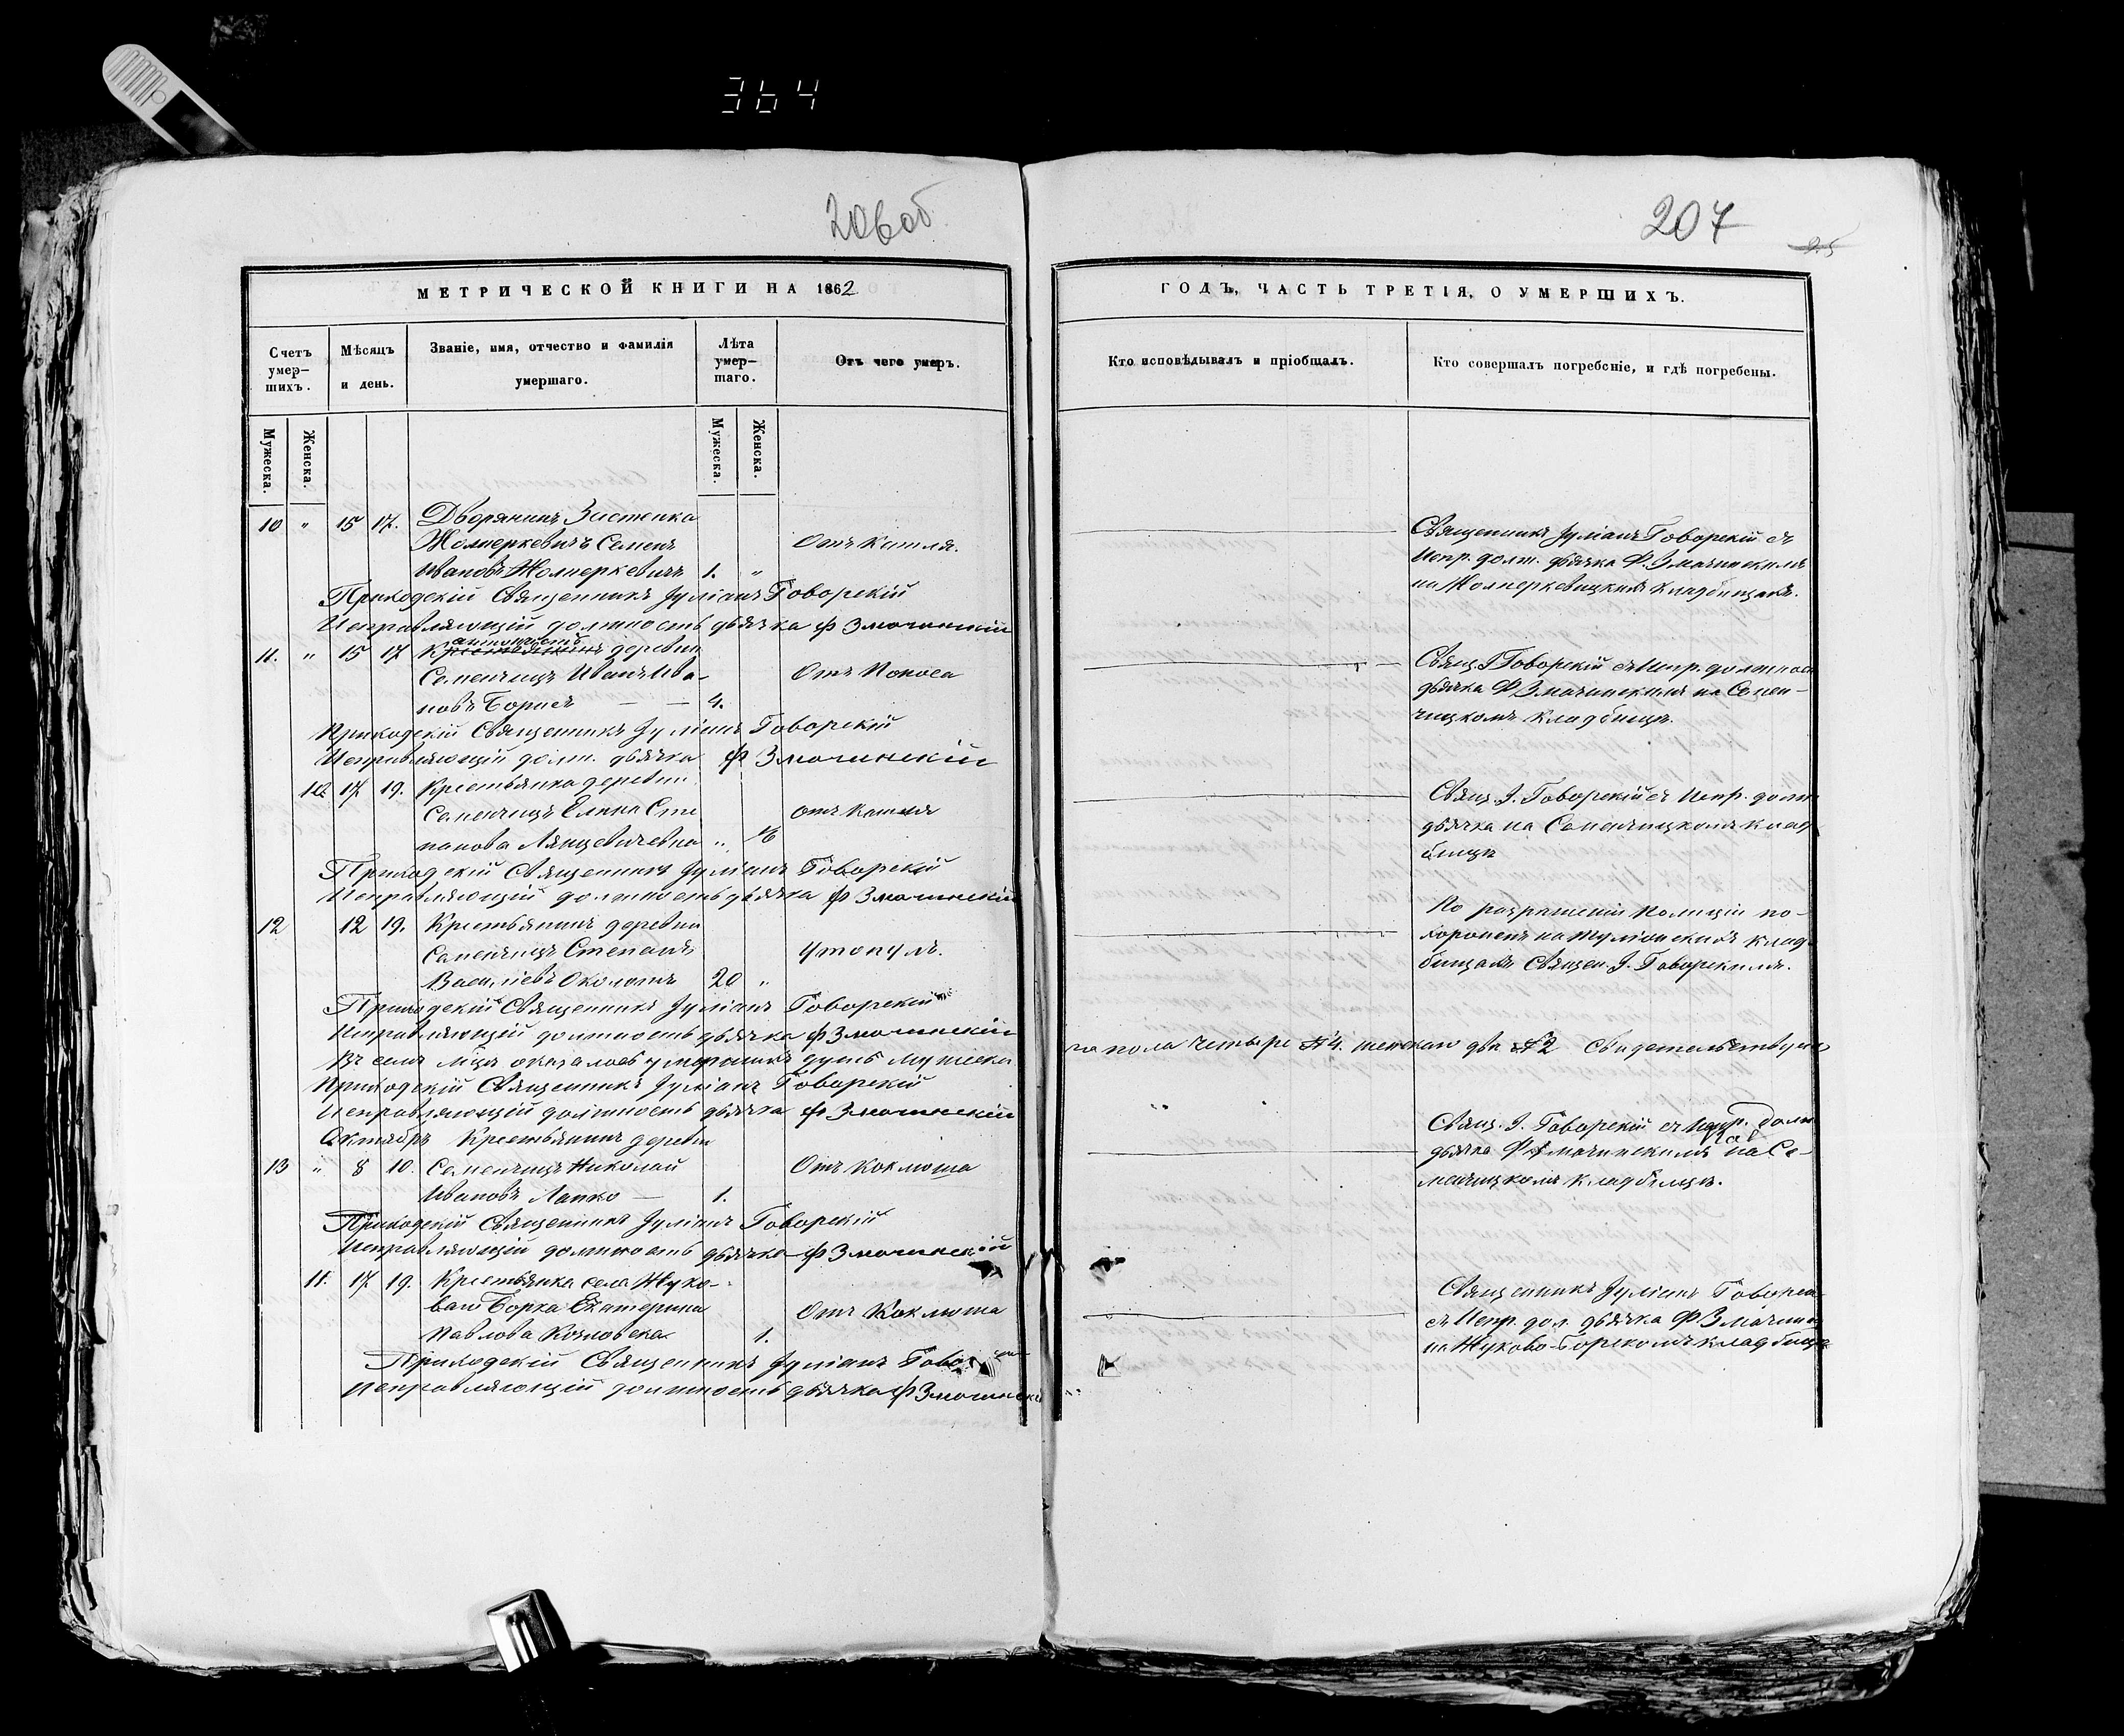 364
206 об
МЕТРИЧЕСКОЙ КНИГИ НА 1862
Счетъ умер–шихъ.
Мѣсяцъ и день.
Званіе, имя, отчество и фамилія умершаго.
Лѣта умер–шаго.
Отъ чего умеръ.
Мужеска.
Женска.
Мужеска.
Женска.
10 " 15 17. Дворянинъ Застенка
Жолнеркевичъ Семенъ Отъ Кашля.
Ивановъ Жолнеркевичъ 1. "
Приходскій Священникъ Іуліанъ Говорскій
Исправляющій должность дьячка Ф Змачинскій
11. " 15 17 деревни
Семенчицъ Иванъ Ива– Отъ Поноса
новъ Борисъ — — 4.
Приходскій Священникъ Іуліанъ Говорскій
Исправляющій долж. дьячка Ф Змачинскій
10. 17. 19. Крестьянка деревни
Семенчицъ Елена Сте отъ Кашля
панова " 16
Приходскій Священникъ Іуліанъ Говорскій
Исправляющій должность дьячка Ф Змачинскій
12 12 19. Крестьянинъ деревни
Семенчицъ Степанъ Утонулъ.
Васильевъ 20 "
Приходскій Священникъ Іуліанъ Говорскій
Исправляющій должность дьячка Ф Змачинскій
Въ семъ м‑цѣ оказалось умершихъ душъ мужеска
Приходскій Священникъ Іуліанъ Говорскій
Исправляющій должность дьячка Ф Змачинскій
Октябрь Крестьянинъ деревни
13 " 8 10. Семенчицъ Николай Отъ Коклюша
Ивановъ Лапко — 1.
Приходскій Священникъ Іуліанъ Говорскій
Исправляющій должность дьячка Ф Змачинскій
11. 17. 19. Крестьянка села Жуко–
ваго Борка Екатерина Отъ Коклюша
Павлова Козловска 1.
Приходскій Священникъ Іуліанъ
Исправляющій должность дьячка Ф Змачински
207
25
ГОДЪ, ЧАСТЬ ТРЕТІЯ, О УМЕРШИХЪ.
Кто исповѣдывалъ и пріобщалъ.
Кто совершалъ погребеніе, и гдѣ погребены.
Священникъ Іуліанъ Говорскій съ
Испр. долж. дьячка Ф. Змачинскимъ
на Жолнеркевицкихъ кладбищахъ.
Свящ. І Говорскій съ Испр. должнос
дьячка Ф Змачинскимъ на Семен–
чицкомъ кладбищѣ.
Свящ. І. Говорскій съ Испр. долж
дьячка на Семенчицкомъ клад
бищѣ
По разрѣшенію Полиціи по–
хороненъ на клад
бищахъ Священ. І. Говорскимъ.
го пола четыре № 4. женскаго два № 2 Свидетельствуемъ
Свящ. І. Говорскій съ Испр. долж
дьячка Ф Змачинскимъ на Се–
менчицкомъ кладбищѣ.
Священникъ Іуліанъ Говорск
съ Испр. дол. дьячка Ф Змачин
на Жуково-Борскомъ кладбищѣ